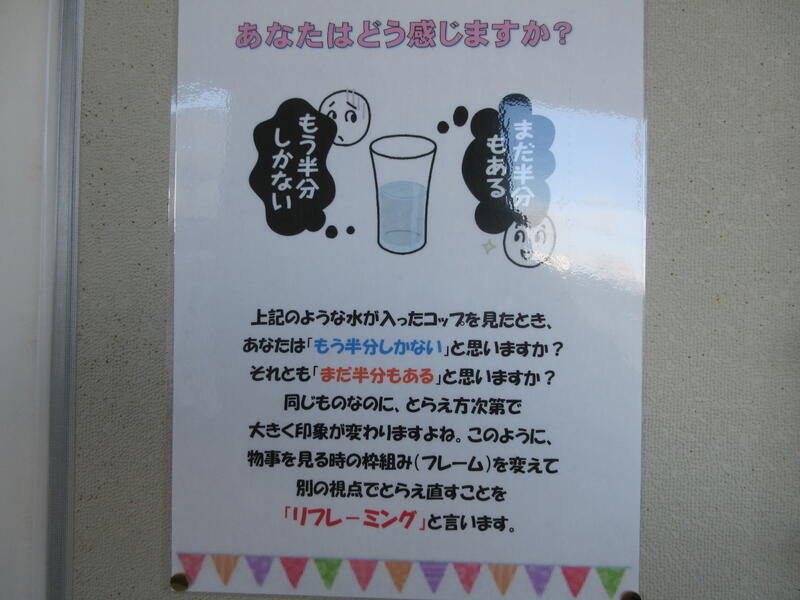 あなたはどう感じますか？
もう半分
しかない
まだ半分
もある
上記のような水が入ったコップを見たとき、
あなたは「もう半分しかない」と思いますか？
それとも「まだ半分もある」と思いますか？
同じものなのに、とらえ方次第で
大きく印象が変わりますよね。このように、
物事を見る時の枠組み（フレーム）を変えて
別の視点でとらえ直すことを
「リフレーミング」と言います。